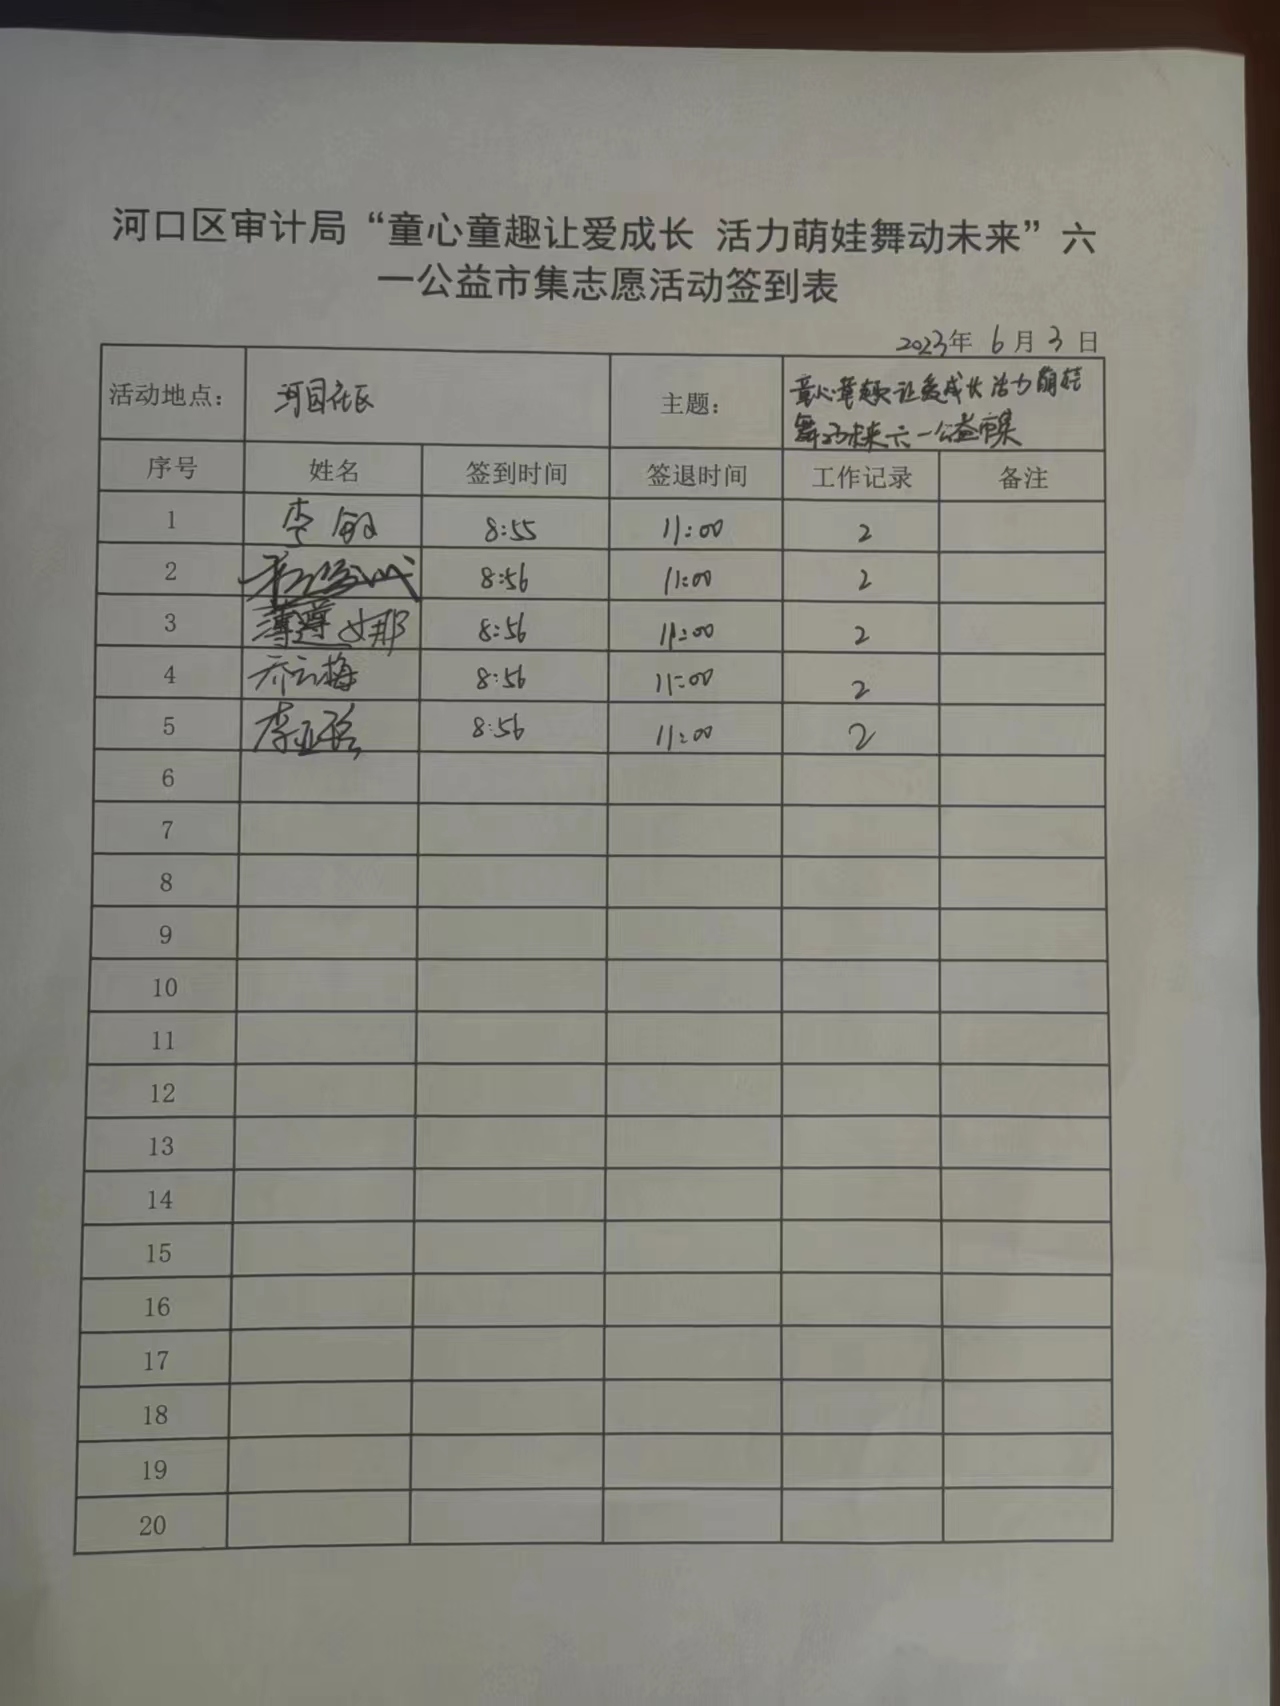 河口区审计局“童心童趣让爱成长 活力萌娃舞动未来”六
一公益市集志愿活动签到表
2023年 6月 3日
活动地点： 河园社区 主题： 童心童趣让爱成长活力萌娃
舞动未来六一公益市集
序号 姓名 签到时间 签退时间 工作记录 备注
1 李敏 8:55 11:00 2
2 8:56 11:00 2
3 薄遵娜 8:56 11:00 2
4 乔云梅 8:56 11:00 2
5 李亚 8:56 11:00 2
6
7
8
9
10
11
12
13
14
15
16
17
18
19
20